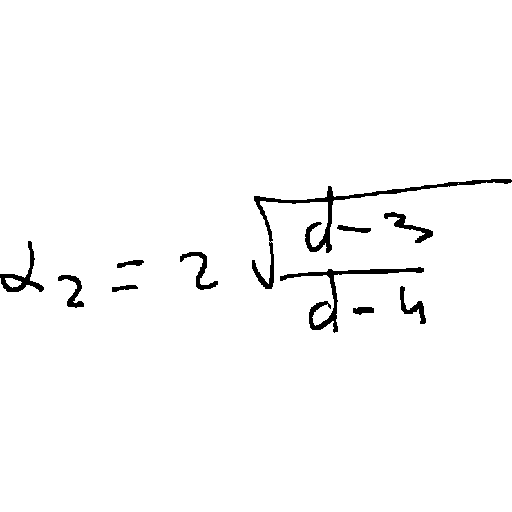 \alpha_2 = 2 \sqrt{\frac{d-3}{d-4}}